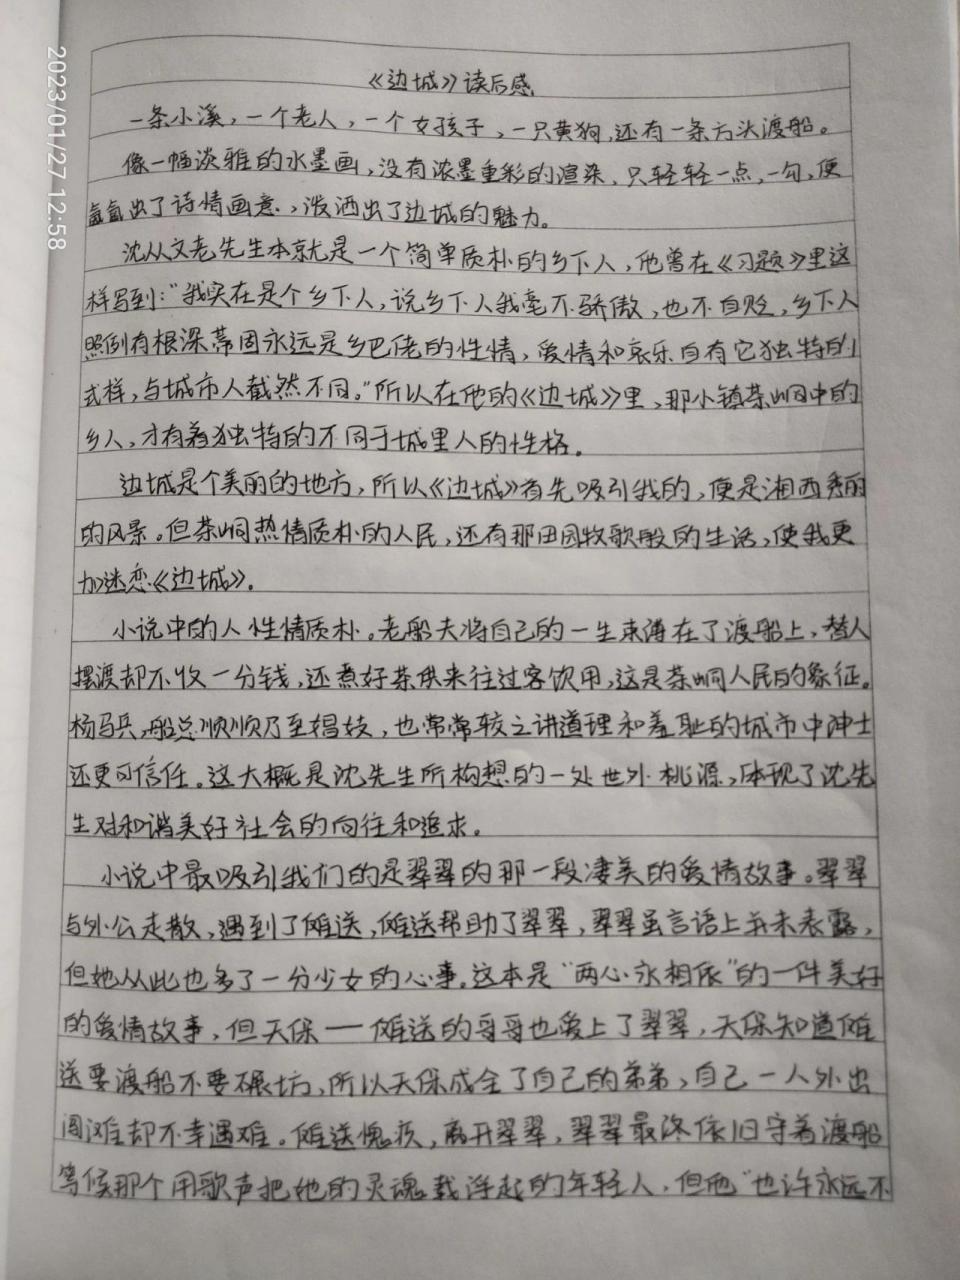 2023/01/27 12:58
《边城》读后感
一条小溪，一个老人，一个女孩子，一只黄狗，还有一条方头渡船。
像一幅淡雅的水墨画，没有浓墨重彩的渲染，只轻轻一点，一勾，便
氤氲出了诗情画意，泼洒出了边城的魅力。
沈从文老先生本就是一个简单质朴的乡下人，他曾在《习题》里这
样写到：“我实在是个乡下人，说乡下人我毫不骄傲，也不自贬，乡下人
照例有根深蒂固永远是乡巴佬的性情，爱情和哀乐自有它独特的
式样，与城市人截然不同。”所以在他的《边城》里，那小镇茶峒中的
乡人，才有着独特的不同于城里人的性格。
边城是个美丽的地方，所以《边城》首先吸引我的，便是湘西秀丽
的风景。但茶峒热情质朴的人民，还有那田园牧歌般的生活，使我更
加迷恋《边城》。
小说中的人性情质朴。老船夫将自己的一生束缚在了渡船上，替人
摆渡却不收一分钱，还煮好茶供来往过客饮用，这是茶峒人民的象征。
杨马兵，船总顺顺乃至娼妓，也常常较之讲道理和羞耻的城市中绅士
还更可信任。这大概是沈先生所构想的一处世外桃源，体现了沈先
生对和谐美好社会的向往和追求。
小说中最吸引我们的是翠翠的那一段凄美的爱情故事。翠翠
与外公走散，遇到了傩送，傩送帮助了翠翠，翠翠虽言语上并未表露，
但她从此也多了一分少女的心事。这本是“两心永相依”的一件美好
的爱情故事，但天保——傩送的哥哥也爱上了翠翠，天保知道傩
送要渡船不要碾坊，所以天保成全了自己的弟弟，自己一人外出
闯滩却不幸遇难。傩送愧疚，离开翠翠，翠翠最终依旧守着渡船
等候那个用歌声把她的灵魂载浮起的年轻人，但他“也许永远不